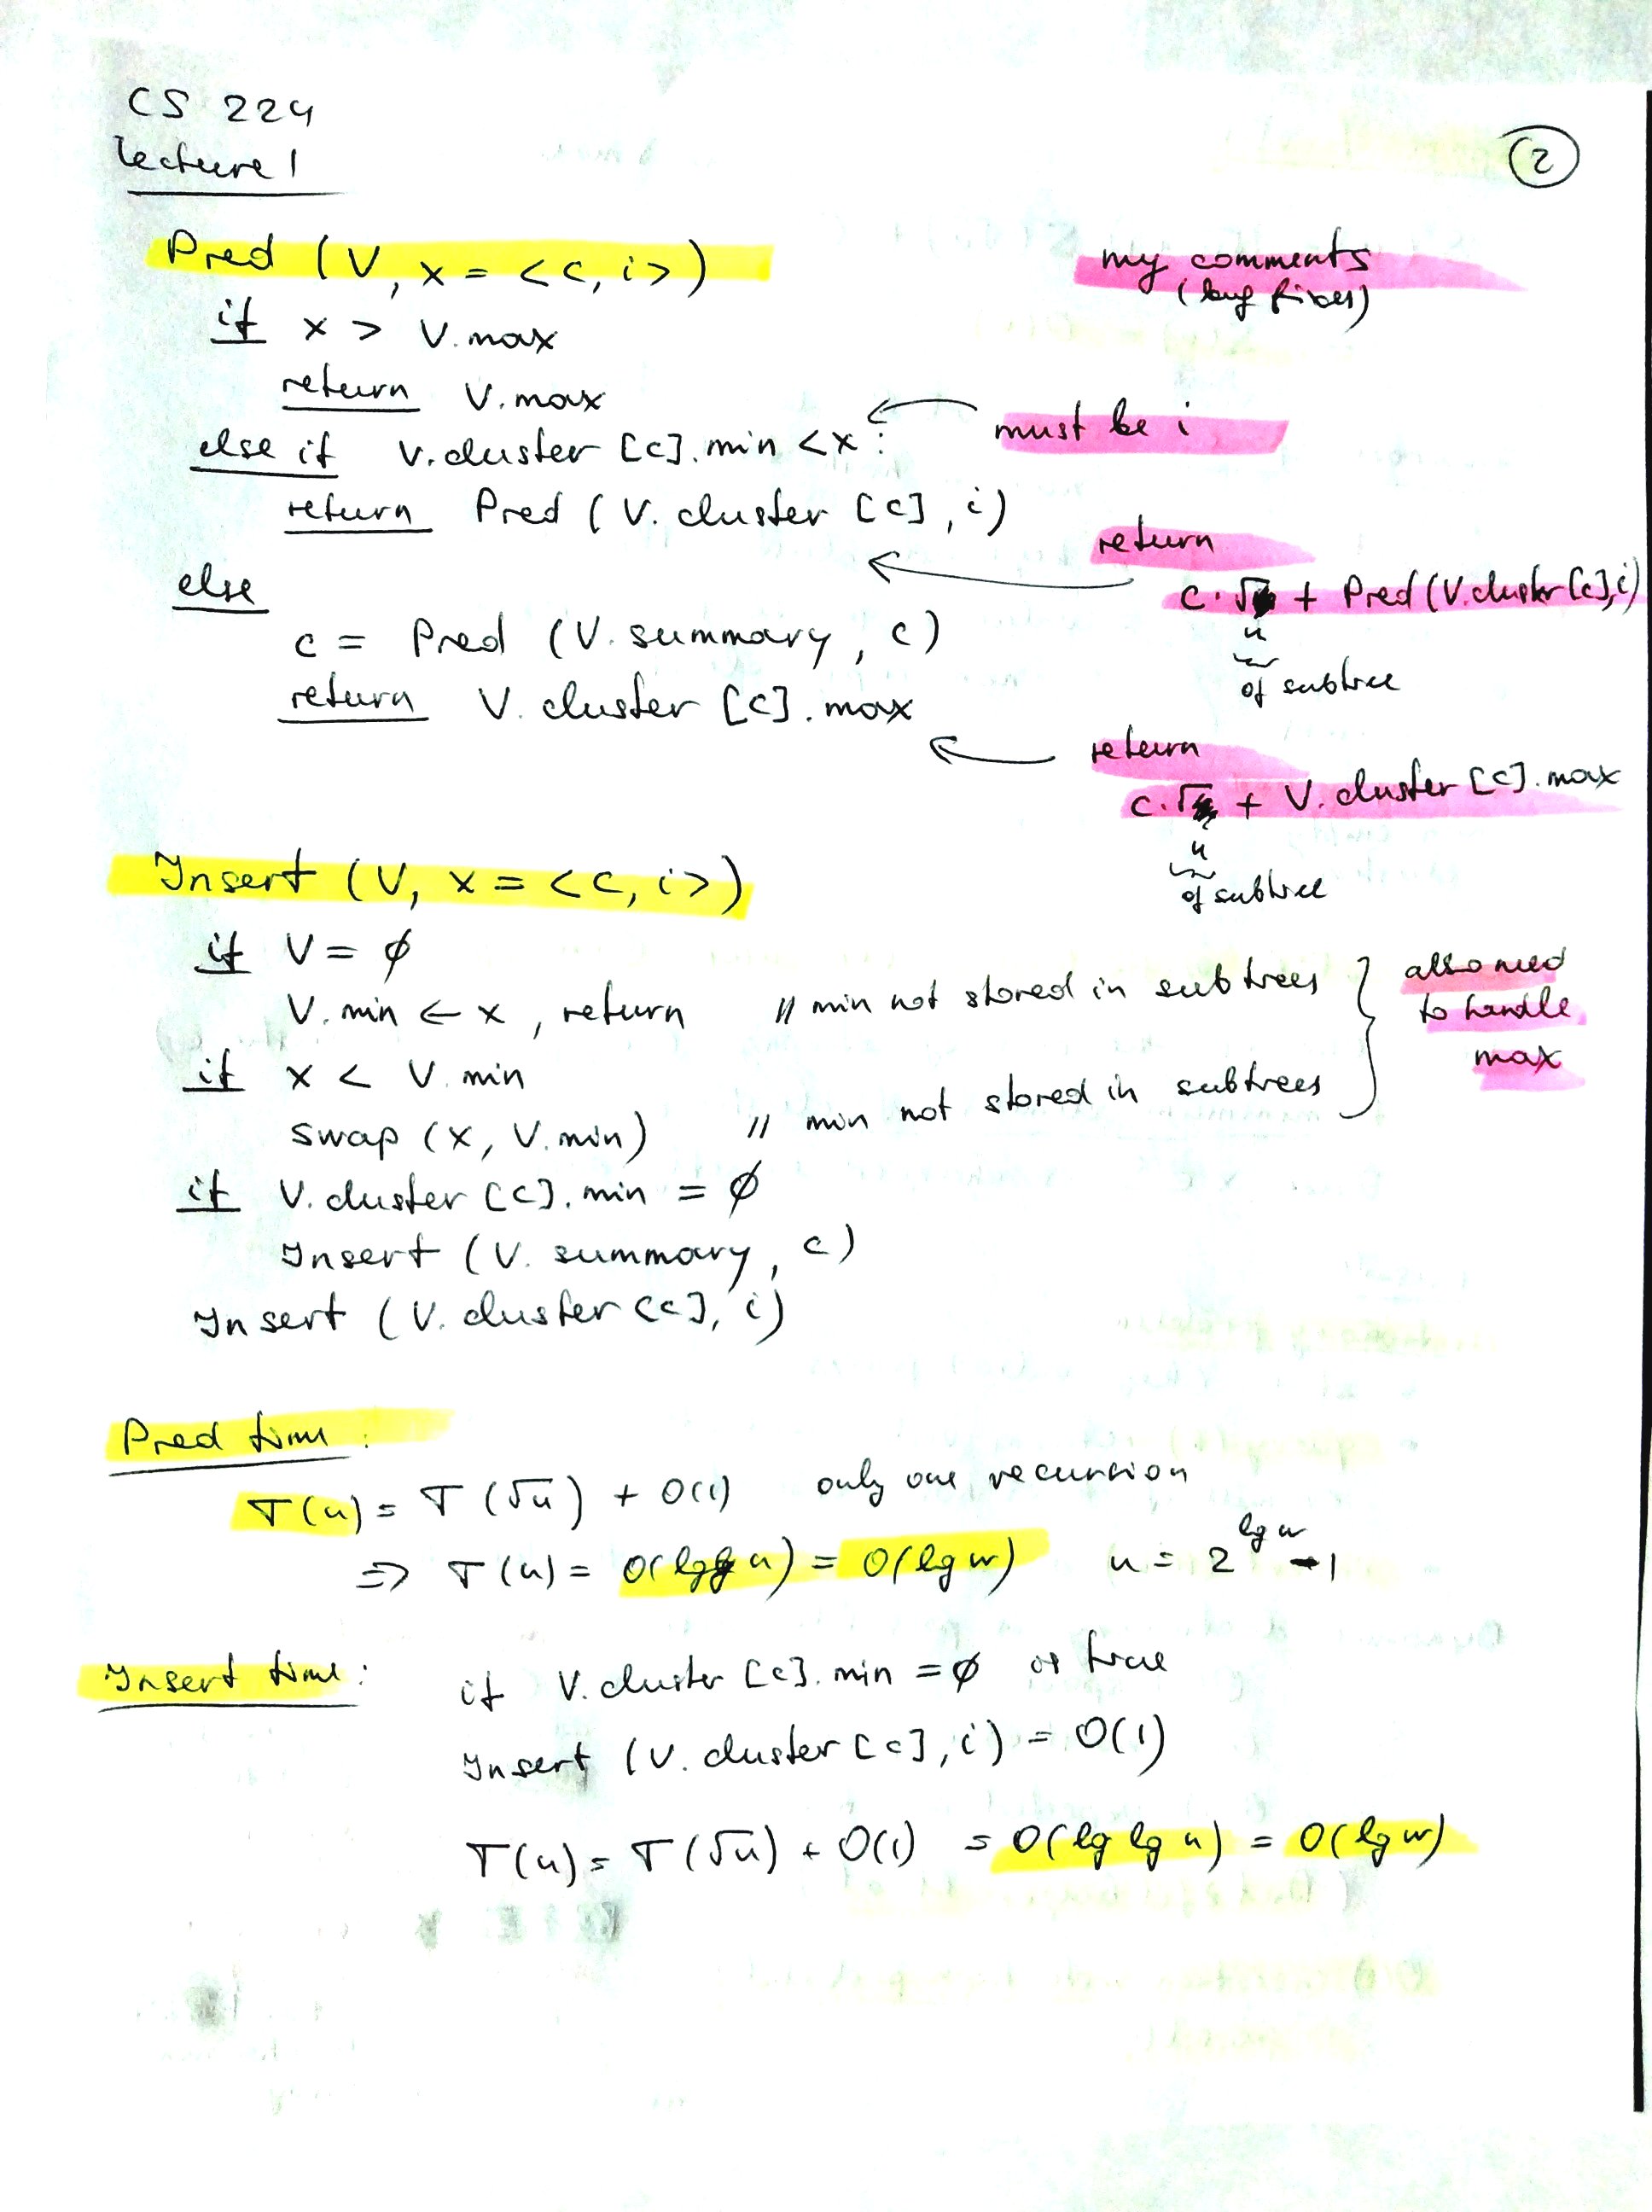 CS 224
Lecture 1
2
Pred (V, x = <c, i>)
my comments
(bug fixes)
if x > V.max
return V.max
else if V.cluster [c].min < x :
must be i
return Pred (V.cluster [c], i)
return
c·√u + Pred (V.cluster [c], i)
of subtree
else
c = Pred (V.summary, c)
return V.cluster [c].max
return
c·√u + V.cluster [c].max
of subtree
Insert (V, x = <c, i>)
if V = ∅
V.min ← x, return // min not stored in subtrees
if x < V.min
swap (x, V.min) // min not stored in subtrees
also need
to handle
max
if V.cluster [c].min = ∅
Insert (V.summary, c)
Insert (V.cluster [c], i)
Pred time :
T(u) = T(√u) + O(1) only one recursion
=> T(u) = O(lglg u) = O(lg w) u = 2^lg u - 1
Insert time : if V.cluster [c].min = ∅ is true
Insert (V.cluster [c], i) = O(1)
T(u) = T(√u) + O(1) = O(lg lg u) = O(lg w)